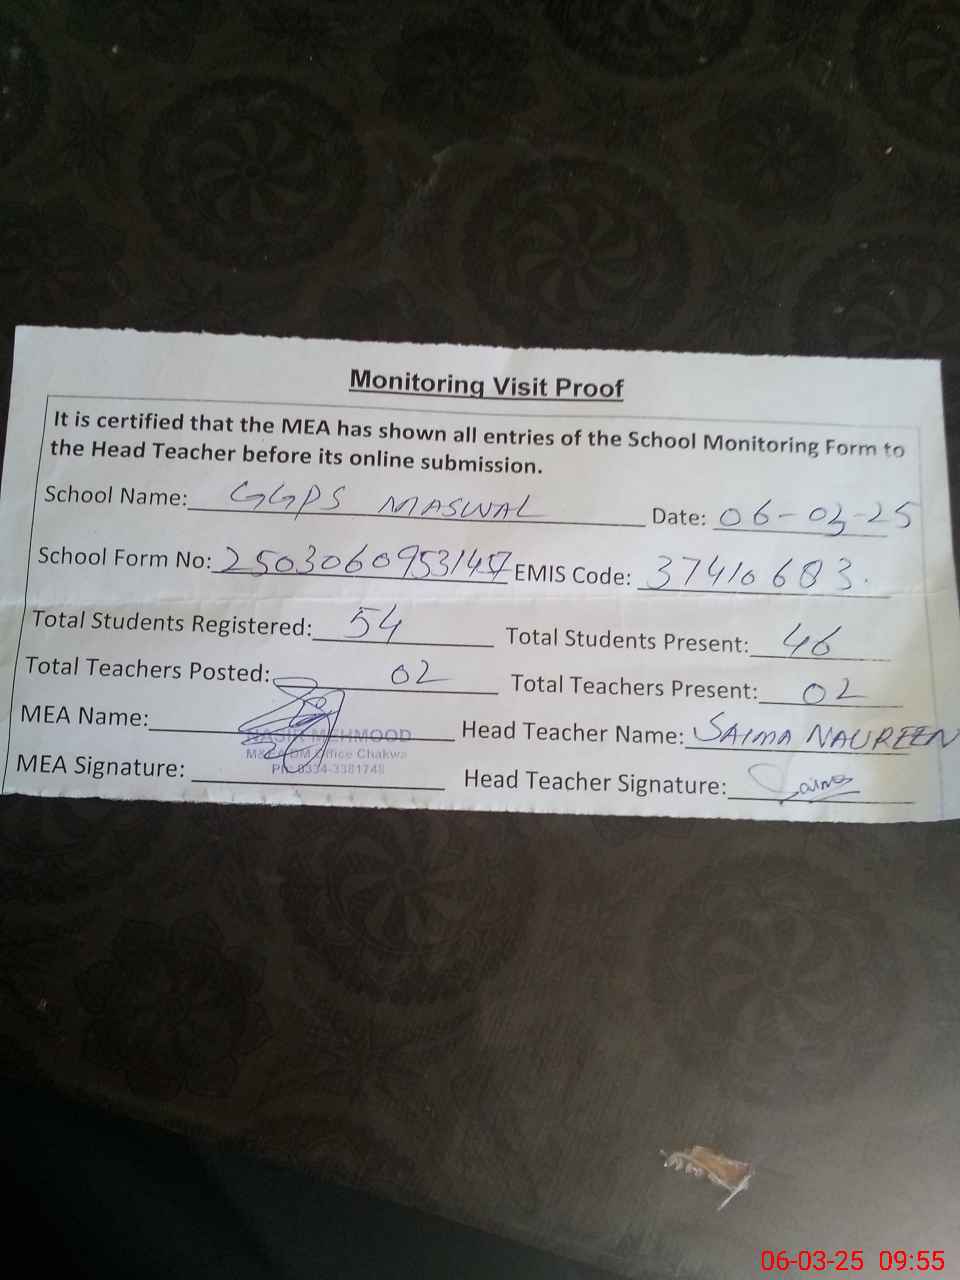 Monitoring Visit Proof
It is certified that the MEA has shown all entries of the School Monitoring Form to
the Head Teacher before its online submission.
School Name: GGPS MASWAL Date: 06-03-25
School Form No: 2503060953147 EMIS Code: 37410683.
Total Students Registered: 54 Total Students Present: 46
Total Teachers Posted: 02 Total Teachers Present: 02
MEA Name: MEHMOOD Head Teacher Name: SAIMA NAUREEN
Office Chakwa
MEA Signature: Ph: 0334-3381748 Head Teacher Signature: Saima
06-03-25 09:55